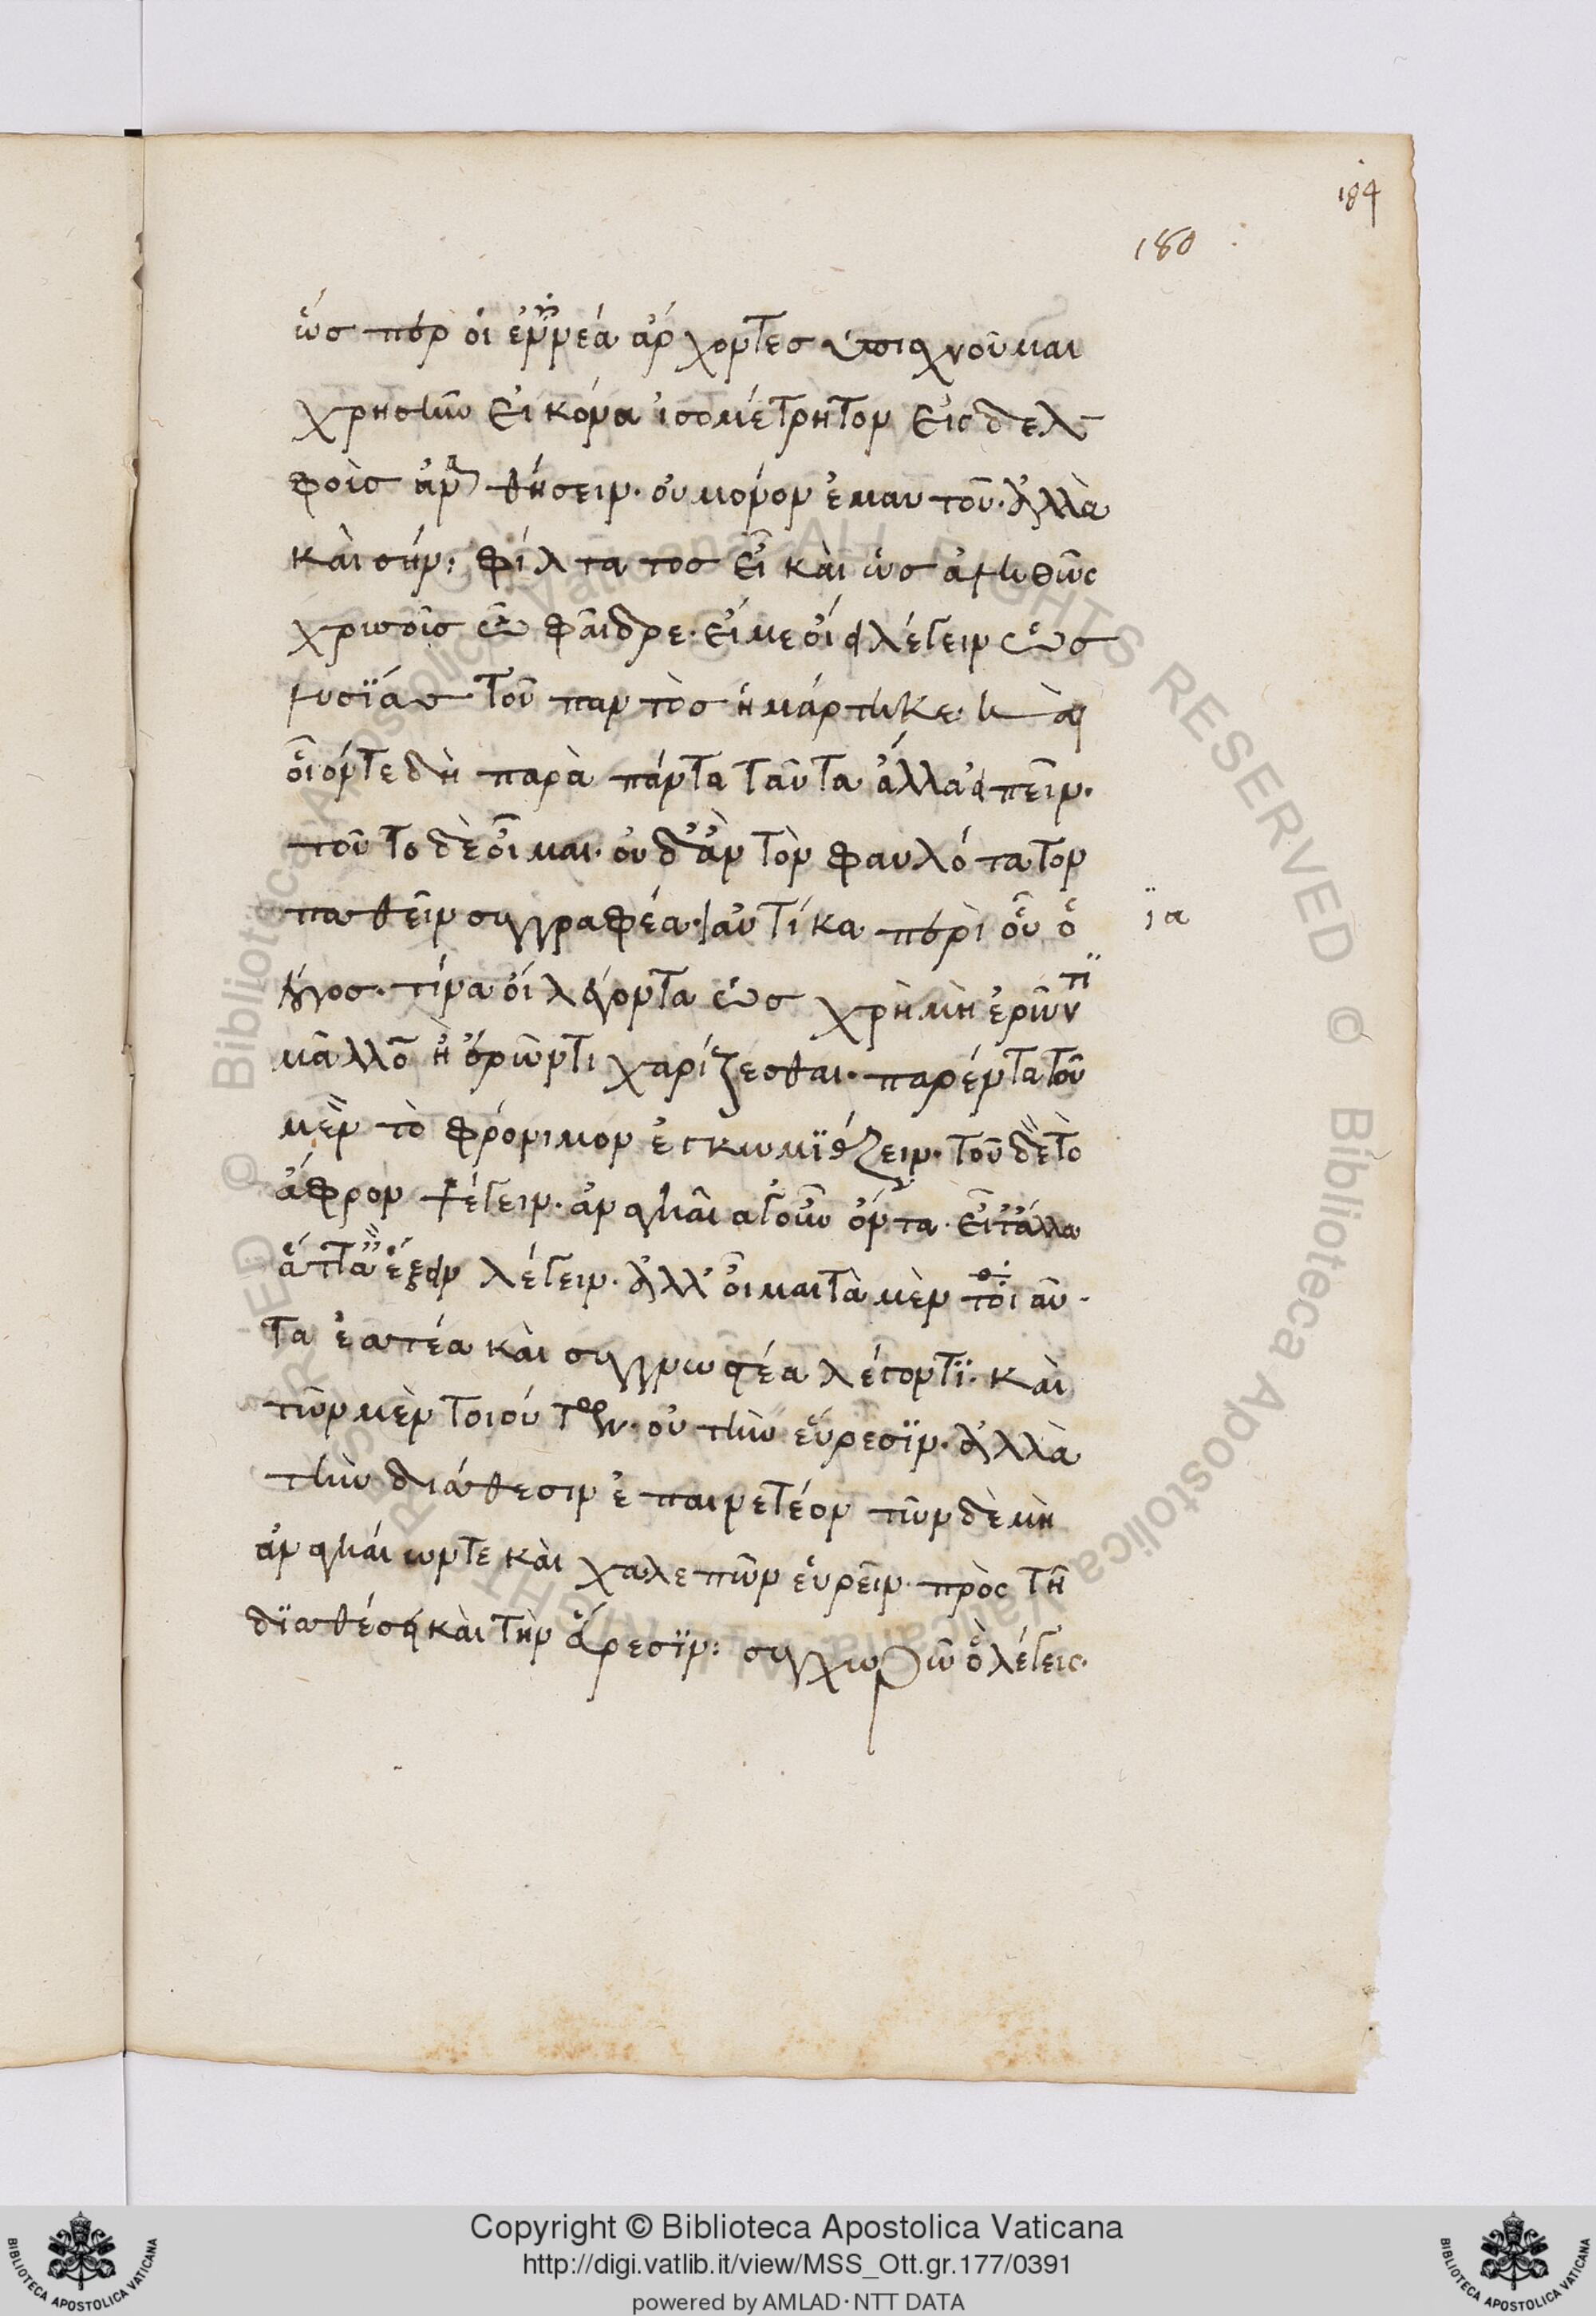 184
180
ὥσπερ οἱ ἐννέα ἄρχοντες ὑπισχνοῦμαι
χρησὴν εἰκόνα ἰσομέτρητον εἰς δελ
φοὶς ἀναθήσειν. οὐ μόνον ἐμαυτοῦ. ἀλλὰ
καὶ σήν: φίλτατος εἶ καὶ ὡς ἀληθῶς
χρυσοῖς ὦ φαῖδρε. εἴ με οἴει λέγειν ὡς
λυσίας τοῦ παντὸς ἡμάρτηκε.
οἷόν τε δὴ παρὰ πάντα ταῦτα ἄλλα εἰπεῖν.
τοῦτο δὲ οἶμαι. οὐδ' ἂν τὸν φαυλότατον
παθεῖν συγγραφέα. αὐτίκα περὶ οὗ ὁ
ια
λόγος. τίνα οἴει λέγοντα ὡς χρὴ μὴ ἐρῶντι
μᾶλλον ἢ ἐρῶντι χαρίζεσθαι. παρέντα τοῦ
μὲν τὸ φρόνιμον ἐγκωμιάζειν. τοῦ δὲ τὸ
ἄφρον ψέγειν. ἀναγκαῖα γοῦν ὄντα. εἶτ' ἄλλα
ἄττα ἕξειν λέγειν. ἀλλ' οἶμαι τὰ μὲν τοιαῦ
τα ἐατέα καὶ συγγνωστέα λέγοντι. καὶ
τῶν μὲν τοιούτων. οὐ τὴν εὕρεσιν. ἀλλὰ
τὴν διάθεσιν ἐπαινετέον τῶν δὲ μὴ
ἀναγκαίων τε καὶ χαλεπῶν εὑρεῖν. πρὸς τῇ
διαθέσει καὶ τὴν εὕρεσιν: συγχωρῶ ὃ λέγεις.
Copyright © Biblioteca Apostolica Vaticana
http://digi.vatlib.it/view/MSS_Ott.gr.177/0391
powered by AMLAD · NTT DATA